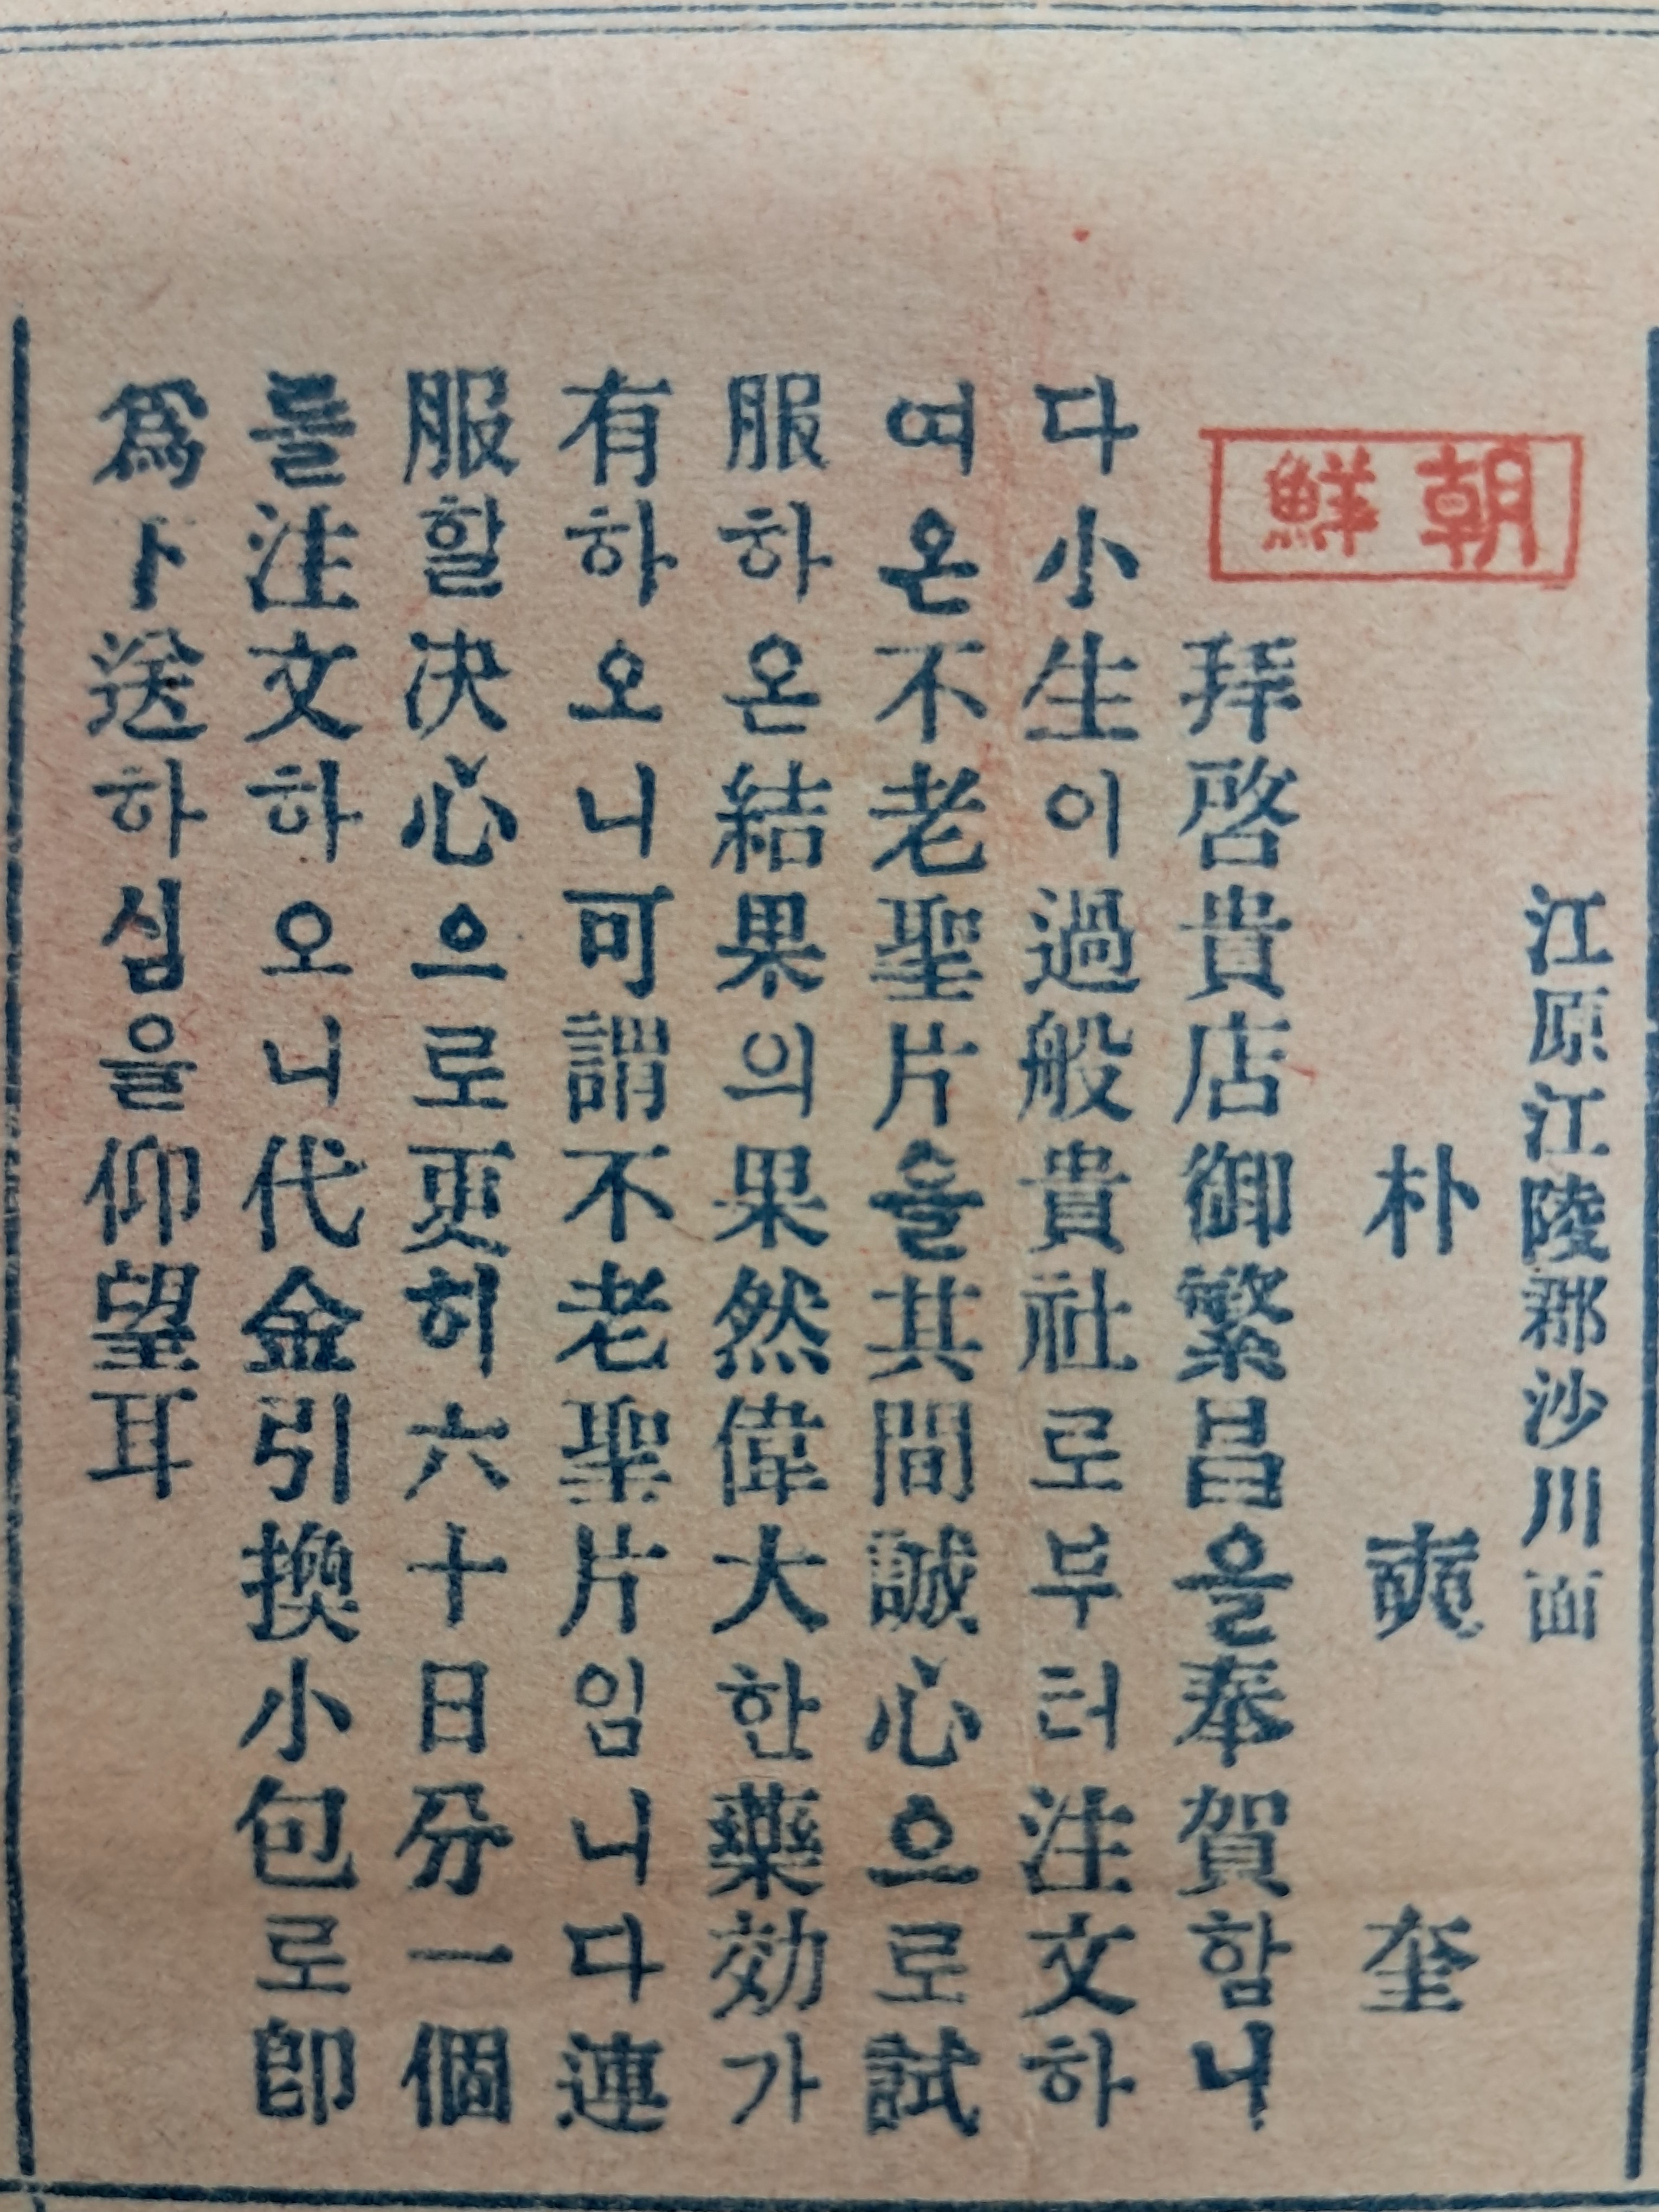 朝鮮
江原江陵郡沙川面
朴奭奎
拜啓貴店御繁昌을奉賀함니
다小生이過般貴社로부터注文하
여온不老聖片을其間誠心으로試
服하온結果의果然偉大한藥効가
有하오니可謂不老聖片임니다連
服할决心으로更히六十日分一個
를注文하오니代金引換小包로卽
爲卜送하심을仰望耳